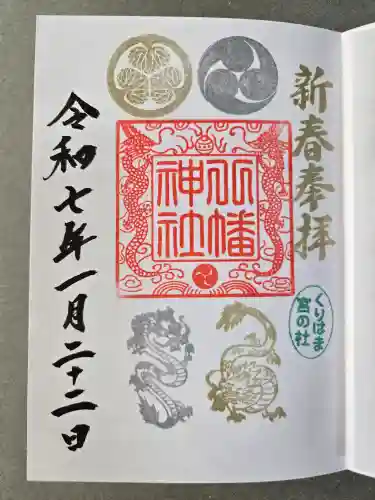 新春奉拝
八幡神社
くりはま
宮の杜
令和七年一月二十二日